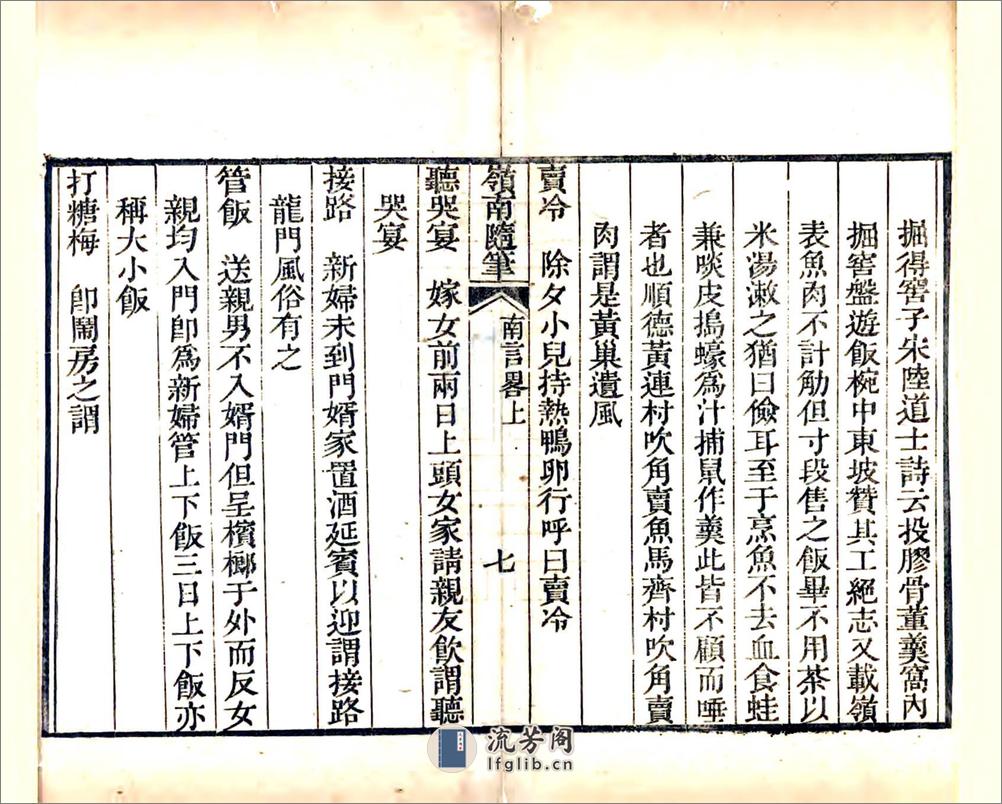 掘得窖子宋陸道士詩云投膠骨董羹窩內
掘窖盤遊飯椀中東坡贊其工絕志又載嶺
表魚肉不計觔但寸段售之飯畢不用茶以
米湯漱之猶曰儉耳至于烹魚不去血食蛙
兼啖皮搗蠔爲汁捕鼠作羹此皆不顧而唾
者也順德黃連村吹角賣魚馬齊村吹角賣
肉謂是黃巢遺風
賣冷　除夕小兒持熱鴨卵行呼曰賣冷
嶺南隨筆　南言畧上　七
聽哭宴　嫁女前兩日上頭女家請親友飲謂聽
哭宴
接路　新婦未到門婿家置酒延賓以迎謂接路
龍門風俗有之
管飯　送親男不入婿門但呈檳榔于外而反女
親均入門卽爲新婦管上下飯三日上下飯亦
稱大小飯
打糖梅　卽鬧房之謂
流芳閣
lfglib.cn